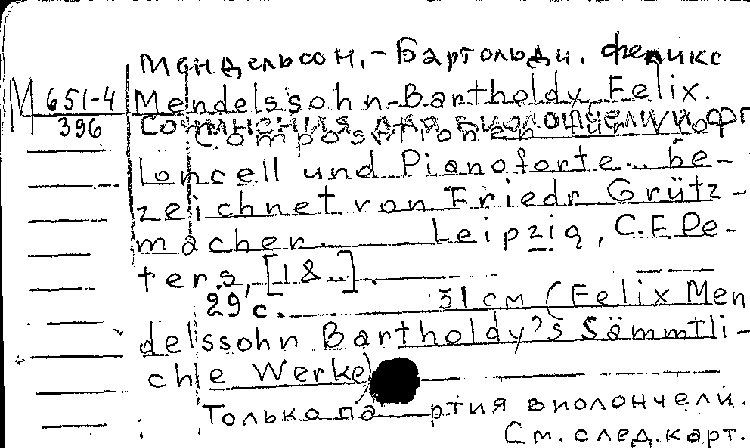 Мендельсон,-Бартольди, Феликс
М 651-4
396
Mendelssohn-Bartholdy, Felix.
Сочинения для виолончели и фп
Compositionen für Vio-
loncell und Pianoforte... be-
zeichnet von Friedr Grütz-
macher Leipzig, C.F.Pe-
ters, [18..].
29 с. 31 см (Felix Men
delssohn Bartholdy's Sämmtli-
che Werke)
Только партия виолончели.
См. след. карт.